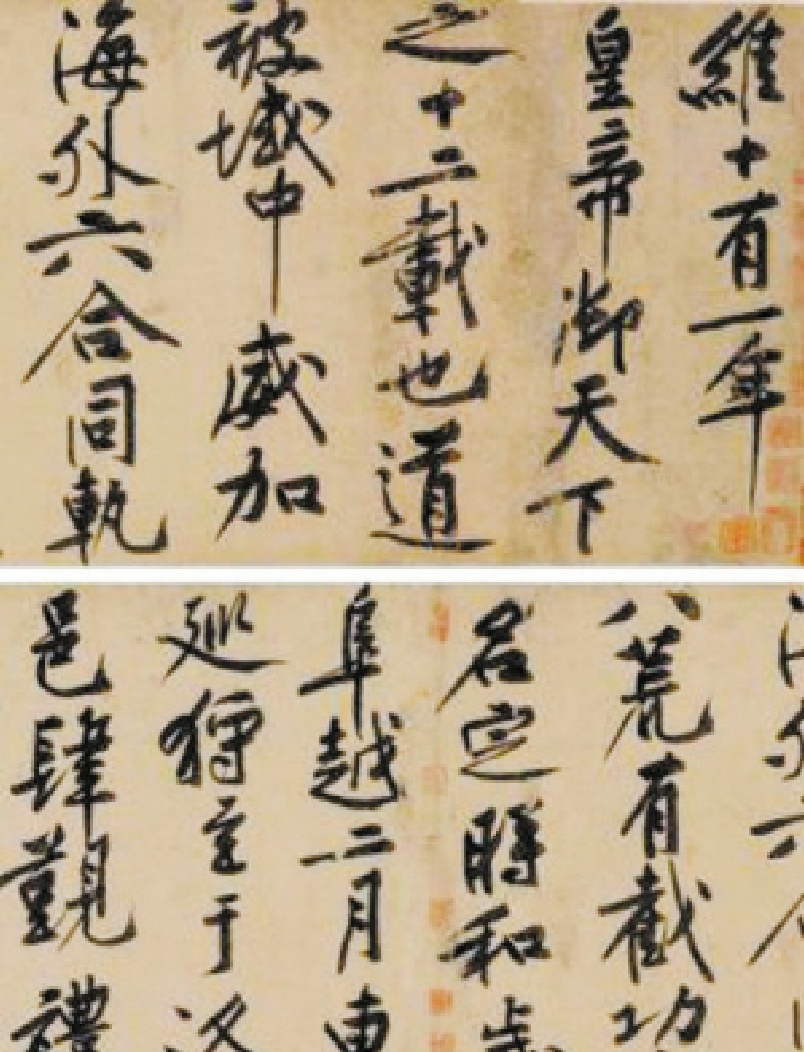 維十有一年
皇帝御天下
之十二載也道
被域中威加
海外六合同軌
八荒有截功
名定時和歲
阜越二月東
巡狩至于洛
邑肆覲禮